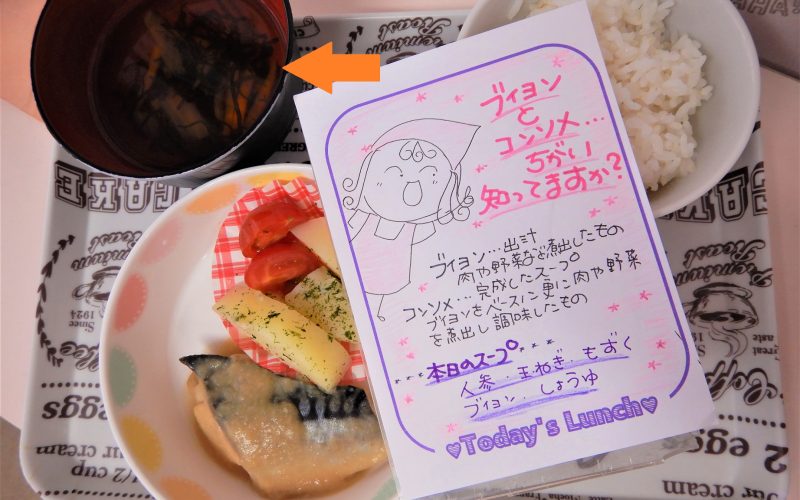 ブイヨン
と
コンソメ…
ちがい
知ってますか?
ブイヨン…出汁
肉や野菜など煮出したもの
コンソメ…完成したスープ
ブイヨンをベースに更に肉や野菜
を煮出し調味したもの
本日のスープ
人参・玉ねぎ・もずく
ブイヨン・しょうゆ
♥Today's Lunch♥
Premium
Roast
CAKE
Since
1924
eggs
1/2 cup
our cream
2
eggs